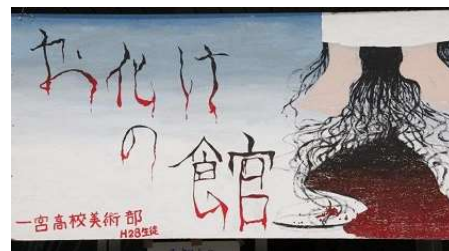 お化け
の
館
一宮高校美術部
H28生徒